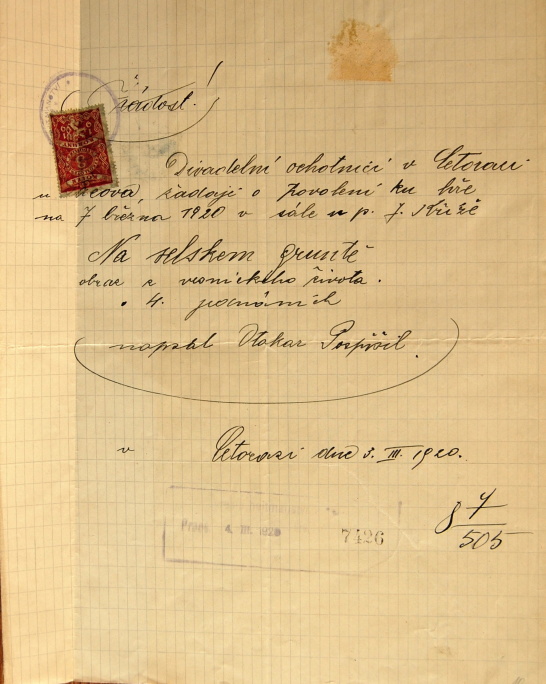 Žádost!
Divadelní ochotníci v Ctorazi
žádají o povolení ku hře
na 7 března 1920 v sále u p. J. Kříže
Na selskem gruntě
obraz z vesnického života.
o 4. jednáních
napsal Otakar Pospíšil.
v Ctorazi dne 3. III. 1920.
4. III. 1920
7426
8 7
505